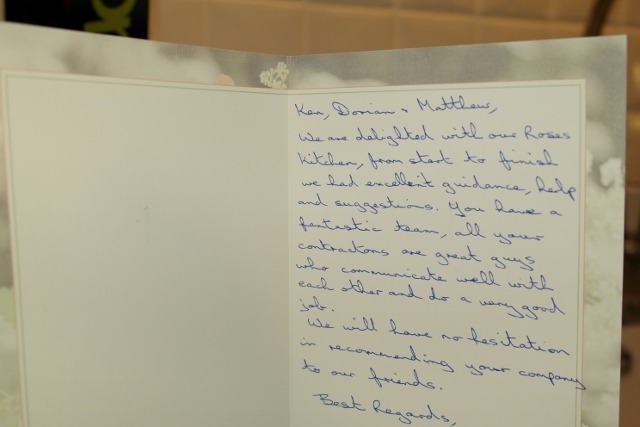 Ken, Dorian & Matthew,
We are delighted with our Roses
Kitchen, from start to finish
we had excellent guidance, help
and suggestions. You have a
fantastic team, all your
contractors are great guys
who communicate well with
each other and do a very good
job.
We will have no hesitation
in recommending your company
to our friends.
Best Regards,